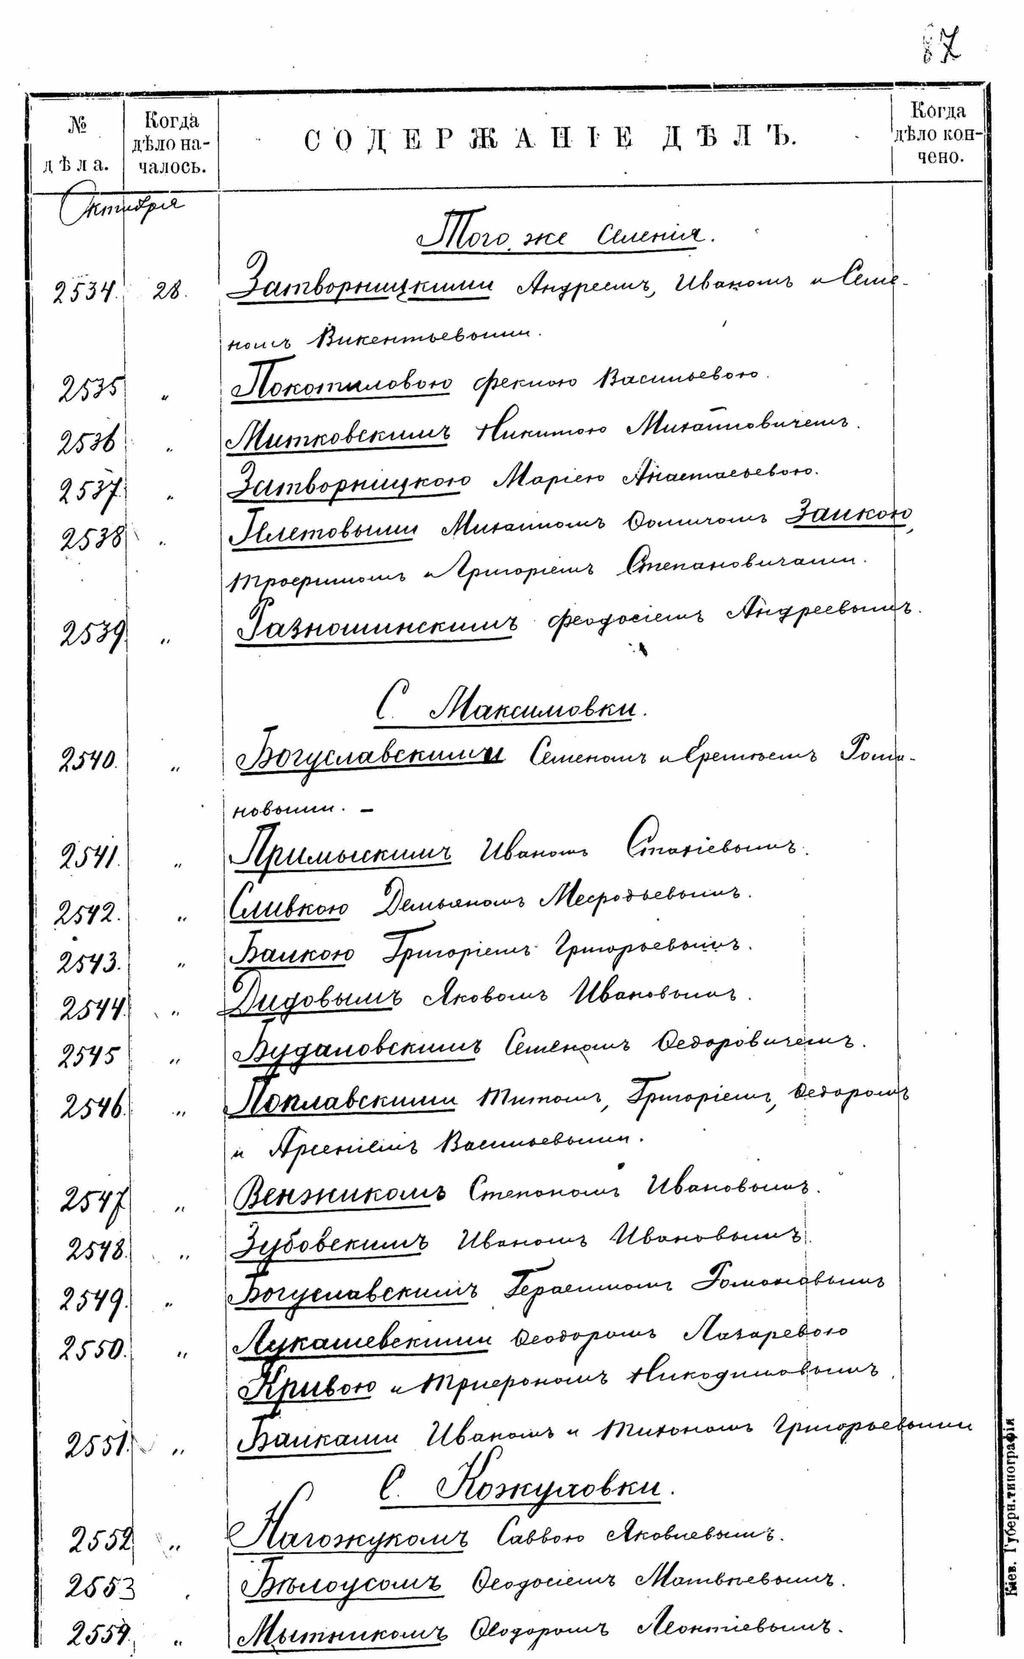 87
№ дѣла.
Когда дѣло началось.
СОДЕРЖАНІЕ ДѢЛЪ.
Когда дѣло кончено.
Октября
Того же селенія.
2534. 28. Затворницкими Андреемъ, Иваномъ и Семе-
номъ Викентьевыми.
2535 " Покотиловою Феклою Васильевою.
2536 " Митковскимъ Никитою Михайловичемъ.
2537 " Затворницкою Маріею Анастасьевою.
2538 " Михаиломъ Заикою,
и Григоріемъ Степановичами.
2539 " Разношинскимъ Феодосіемъ Андреевымъ.
С. Максимовки.
2540. " Богуславскими Семеномъ и Еремѣемъ Рома-
новыми. —
2541. " Примыскимъ Иваномъ
2542. " Сливкою Демьяномъ Мефодьевымъ.
2543. " Балкою Григоріемъ Григорьевымъ.
2544. " Дидовымъ Яковомъ Ивановымъ.
2545 " Будаловскимъ Семеномъ Федоровичемъ.
2546. " Поплавскими Титомъ, Григоріемъ, Федоромъ
и Арсеніемъ Васильевыми.
2547 " Венжикомъ Степаномъ Ивановымъ.
2548. " Зубовскимъ Иваномъ Ивановымъ.
2549. " Богуславскимъ Герасимомъ Романовымъ
2550. " Лукашевскими Феодоромъ Лазаревою
Кривою и Трифономъ Никодимовымъ.
2551. " Балками Иваномъ и Тихономъ Григорьевыми
С. Кожуховки.
2552 " Нагожукомъ Саввою Яковлевымъ.
2553 Бѣлоусомъ Феодосіемъ Матвѣевымъ.
2554. " Мытникомъ Феодоромъ Леонтіевымъ.
Кіев. Губерн. типографія